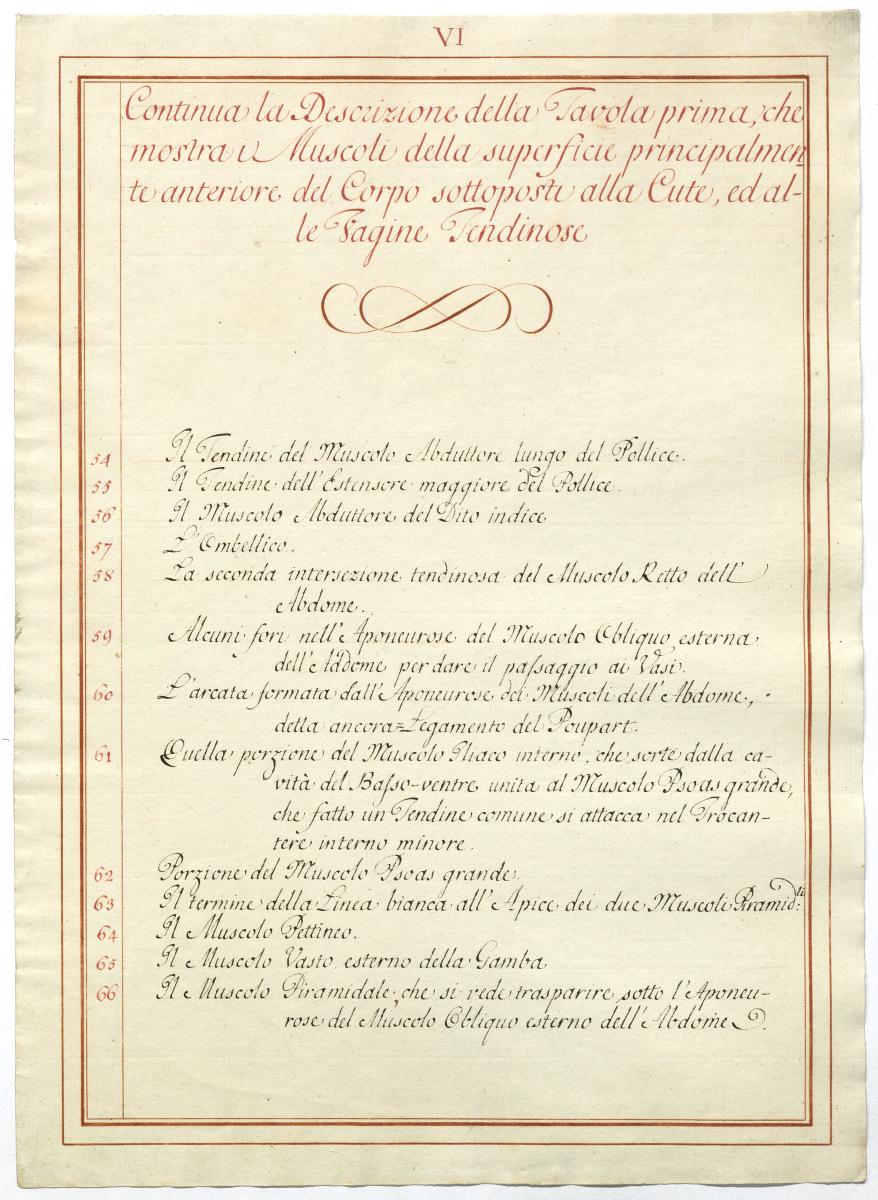 VI
Continua la Descrizione della Tavola prima, che
mostra i Muscoli della superficie principalmen-
te anteriore del Corpo sottoposti alla Cute, ed al-
le Vagine Tendinose
54 Il Tendine del Muscolo Abduttore lungo del Pollice.
55 Il Tendine dell'Estensore maggiore del Pollice.
56 Il Muscolo Abduttore del Dito indice
57 L'Ombellico.
58 La seconda intersezione tendinosa del Muscolo Retto dell'
Abdome.
59 Alcuni fori nell'Aponeurose del Muscolo Obliquo esterna
dell'Addome per dare il paſsaggio ai Vasi.
60 L'arcata formata dall'Aponeurose dei Muscoli dell'Abdome,
detta ancora=Legamento del Poupart.
61 Quella porzione del Muscolo Iliaco interno, che sorte dalla ca-
vità del Baſso-ventre unita al Muscolo Psoas grande,
che fatto un Tendine comune si attacca nel Trocan-
tere interno minore.
62 Porzione del Muscolo Psoas grande
63 Il termine della Linea bianca all'Apice dei due Muscoli Piramid:li
64 Il Muscolo Pettineo.
65 Il Muscolo Vasto esterno della Gamba
66 Il Muscolo Piramidale, che si vede trasparire sotto l'Aponeu-
rose del Muscolo Obliquo esterno dell'Abdome.